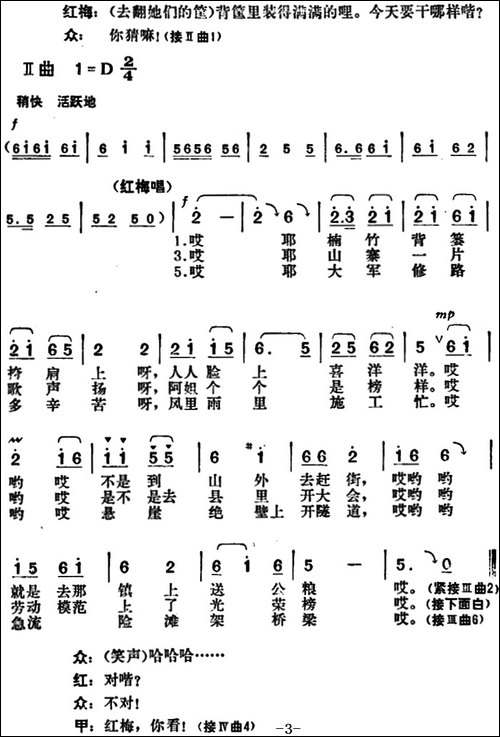 红梅:(去翻她们的筐)背筐里装得满满的哩。今天要干哪样喈?
众: 你猜嘛!(接Ⅱ曲1)
Ⅱ曲 1=D 2/4
稍快 活跃地
f
(6i6i 6i | 6 i i | 5656 56 | 2 5 5 | 6.6 6i | 6i 62 |
(红梅唱)
f
5.5 25 | 52 50) | 2 — | 2 6 | 2.3 2i | 2i 6i |
1.哎 耶 楠竹 背篓
3.哎 耶 山寨 一片
5.哎 耶 大军 修路
mp
2i 65 | 2 2 | i2 i5 | 6. 5 | 25 62 | 5 6i |
挎肩 上呀,人人脸上 喜洋洋。哎
歌声 扬呀,阿妲个个 是榜样。哎
多辛 苦呀,风里雨里 施工忙。哎
2 i6 | ii 55 | 6 #i | 66 2 | i6 6 |
哟 哎 不是 到 山 外 去赶街,哎哟 哟
哟 哎 是不 是去 县 里 开大会,哎哟 哟
哟 哎 悬 崖 绝 壁上 开隧道,哎哟 哟
i5 6i | 6 2 | 6 i 6 | 5 — | 5. 0 ‖
就是 去那 镇上 送公粮 哎。(紧接Ⅲ曲2)
劳动 模范 上了 光荣榜 哎。(接下面白)
急流 险滩 架桥梁 哎。(接Ⅲ曲6)
众:(笑声)哈哈哈……
红: 对喈?
众: 不对!
甲: 红梅,你看!(接Ⅳ曲4)
-3-